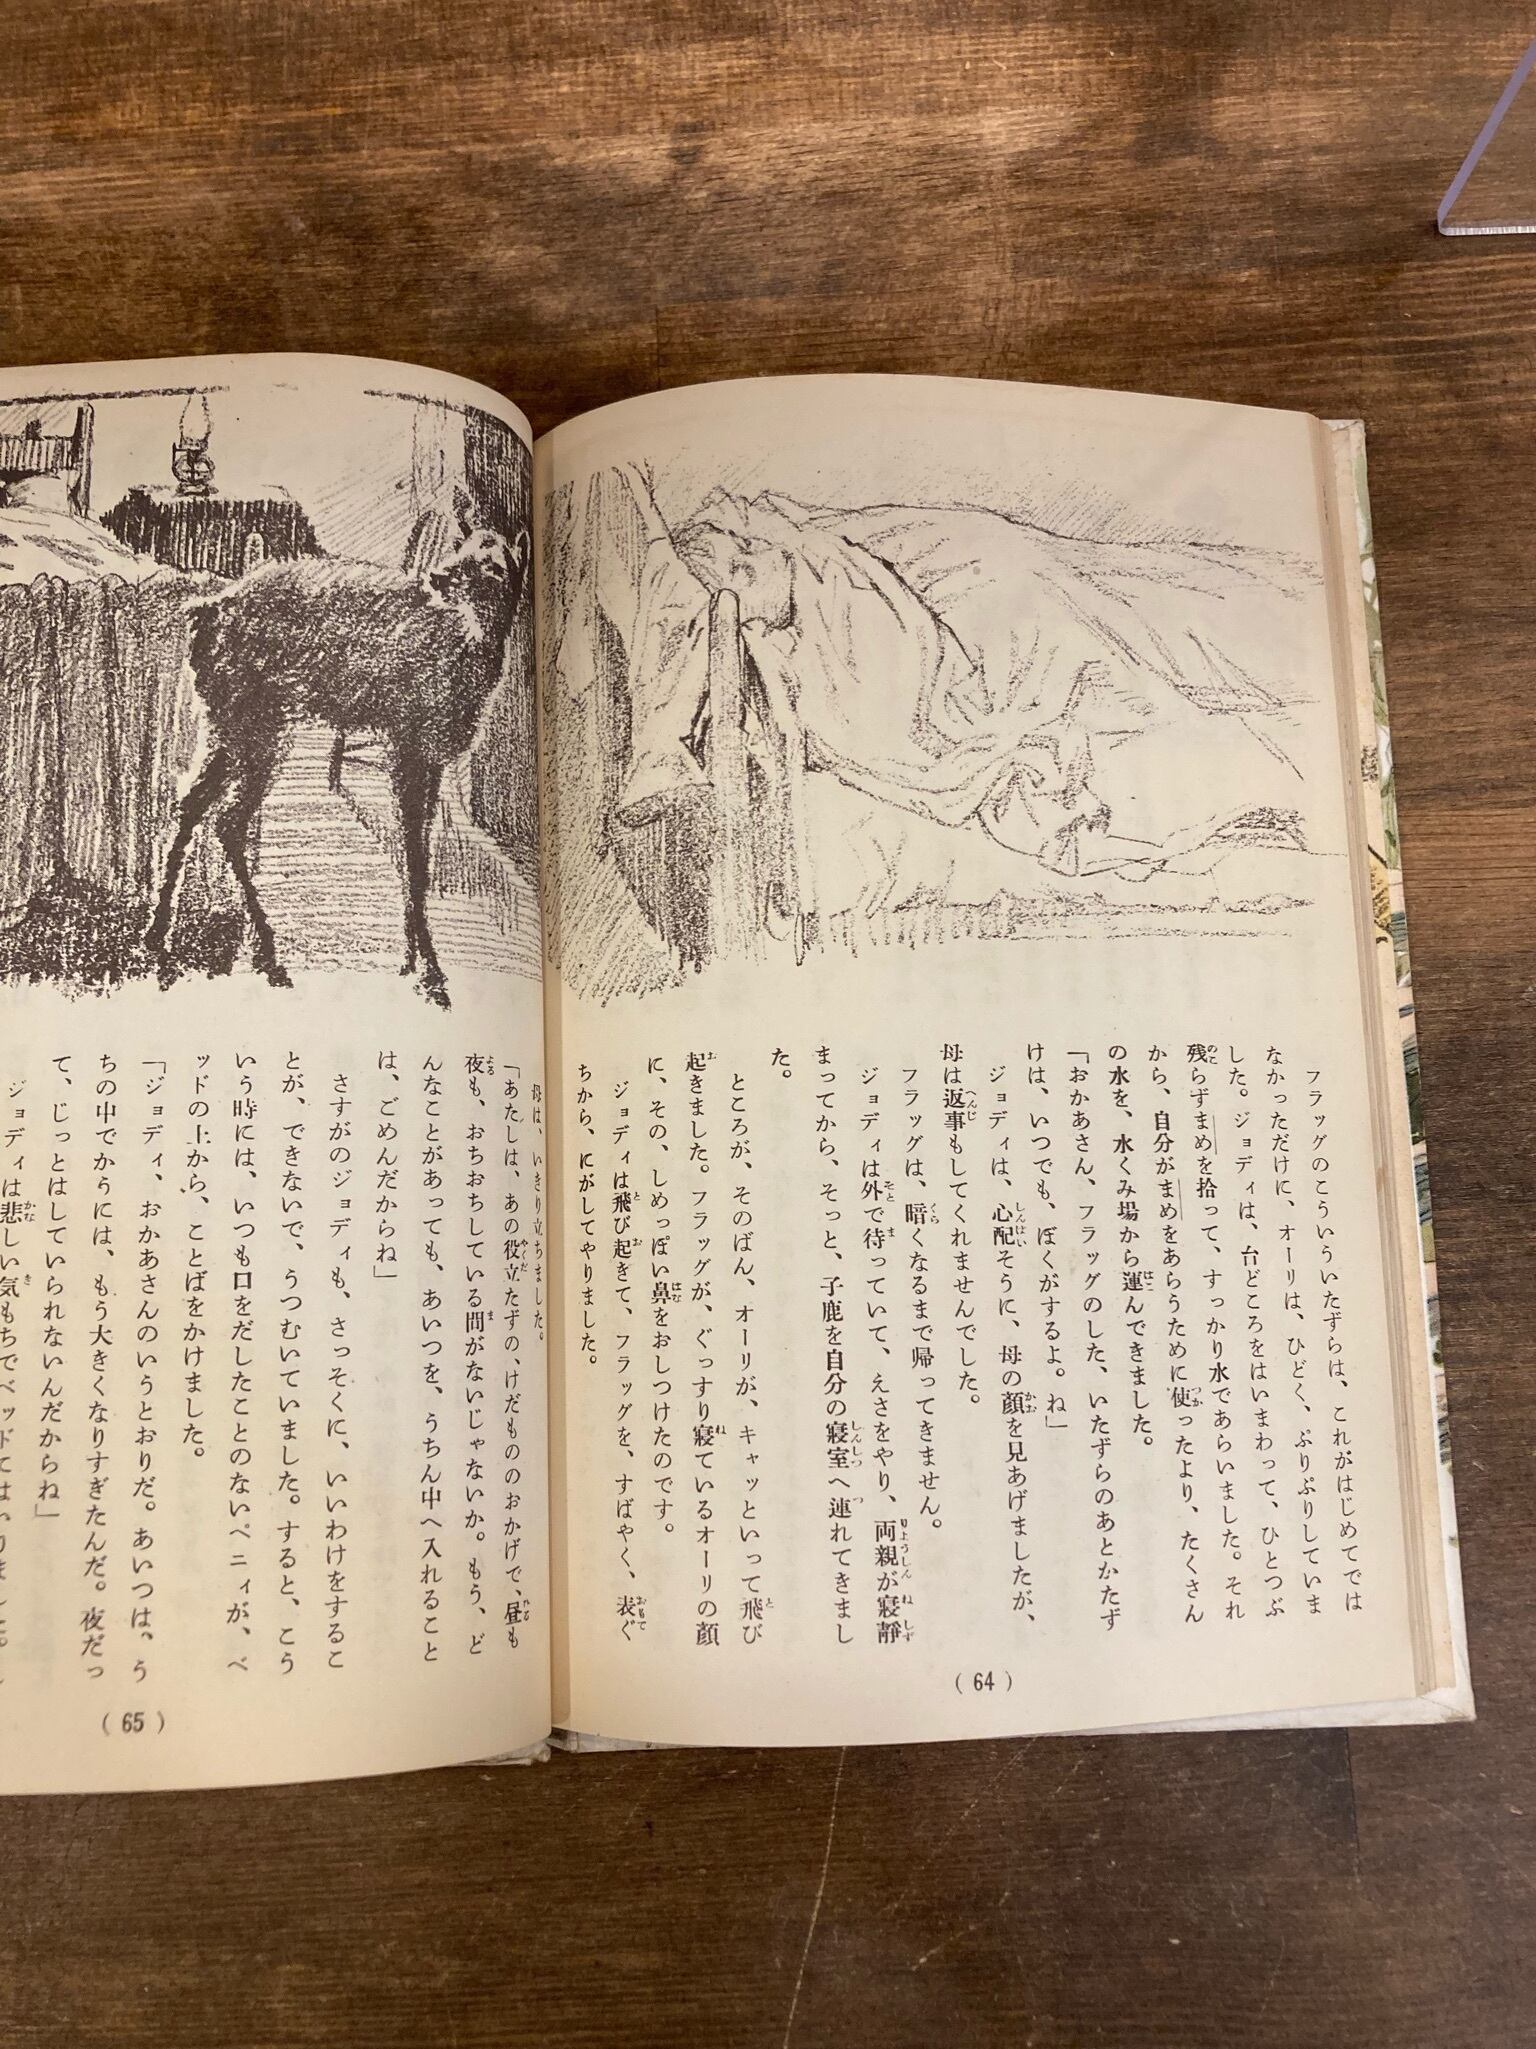 フラッグのこういういたずらは、これがはじめてでは
なかっただけに、オーリは、ひどく、ぷりぷりしていま
した。ジョディは、台どころをはいまわって、ひとつぶ
残らずまめを拾って、すっかり水であらいました。それ
から、自分がまめをあらうために使ったより、たくさん
の水を、水くみ場から運んできました。
「おかあさん、フラッグのした、いたずらのあとかたず
けは、いつでも、ぼくがするよ。ね」
ジョディは、心配そうに、母の顔を見あげましたが、
母は返事もしてくれませんでした。
フラッグは、暗くなるまで帰ってきません。
ジョディは外で待っていて、えさをやり、両親が寝静
まってから、そっと、子鹿を自分の寝室へ連れてきまし
た。
ところが、そのばん、オーリが、キャッといって飛び
起きました。フラッグが、ぐっすり寝ているオーリの顔
に、その、しめっぽい鼻をおしつけたのです。
ジョディは飛び起きて、フラッグを、すばやく、表ぐ
ちから、にがしてやりました。
(64)
母は、いきり立ちました。
「あたしは、あの役立たずの、けだもののおかげで、昼も
夜も、おちおちしている間がないじゃないか。もう、ど
んなことがあっても、あいつを、うちん中へ入れること
は、ごめんだからね」
さすがのジョディも、さっそくに、いいわけをするこ
とが、できないで、うつむいていました。すると、こう
いう時には、いつも口をだしたことのないペニィが、ベ
ッドの上から、ことばをかけました。
「ジョディ、おかあさんのいうとおりだ。あいつは、う
ちの中でかうには、もう大きくなりすぎたんだ。夜だっ
て、じっとはしていられないんだからね」
ジョディは悲しい気もちでベッドに
(65)